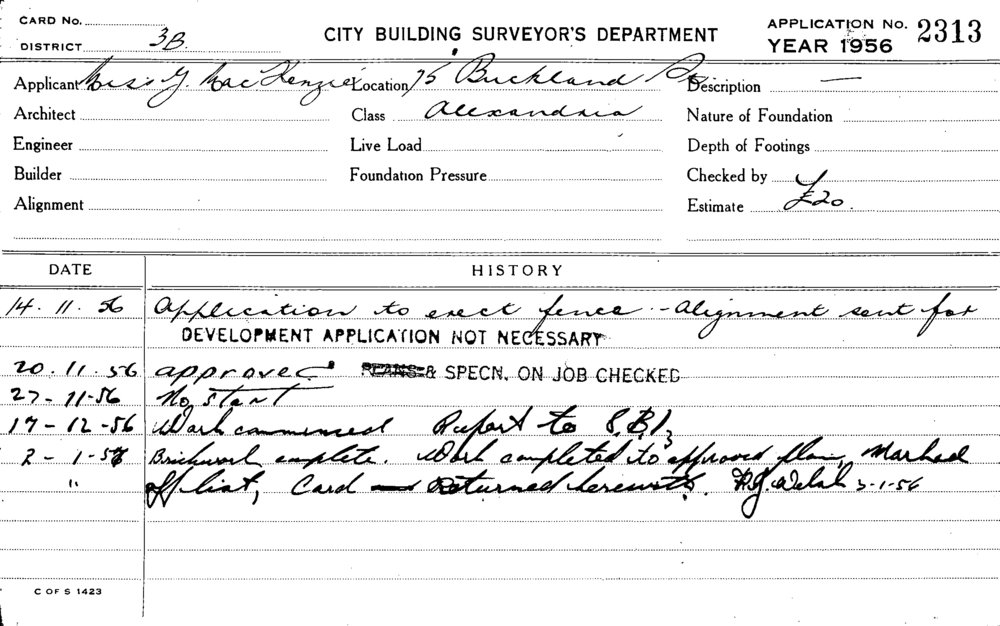 CARD No.
DISTRICT 3B.
CITY BUILDING SURVEYOR'S DEPARTMENT
APPLICATION No. 2313
YEAR 1956
Applicant Miss G. MacKenzie Location 75 Buckland St Description —
Architect Class Alexandria Nature of Foundation
Engineer Live Load Depth of Footings
Builder Foundation Pressure Checked by
Alignment Estimate £20.
DATE HISTORY
14.11.56 Application to erect fence - Alignment sent for
DEVELOPMENT APPLICATION NOT NECESSARY
20.11.56 approved PLANS & SPECN. ON JOB CHECKED
27-11-56 No start
17-12-56 Work commenced Report to S.B.I.
2-1-57 Brickwork complete. Work completed to approved plan, Marked
" off list, Card Returned herewith. Welsh 3-1-56
C OF S 1423